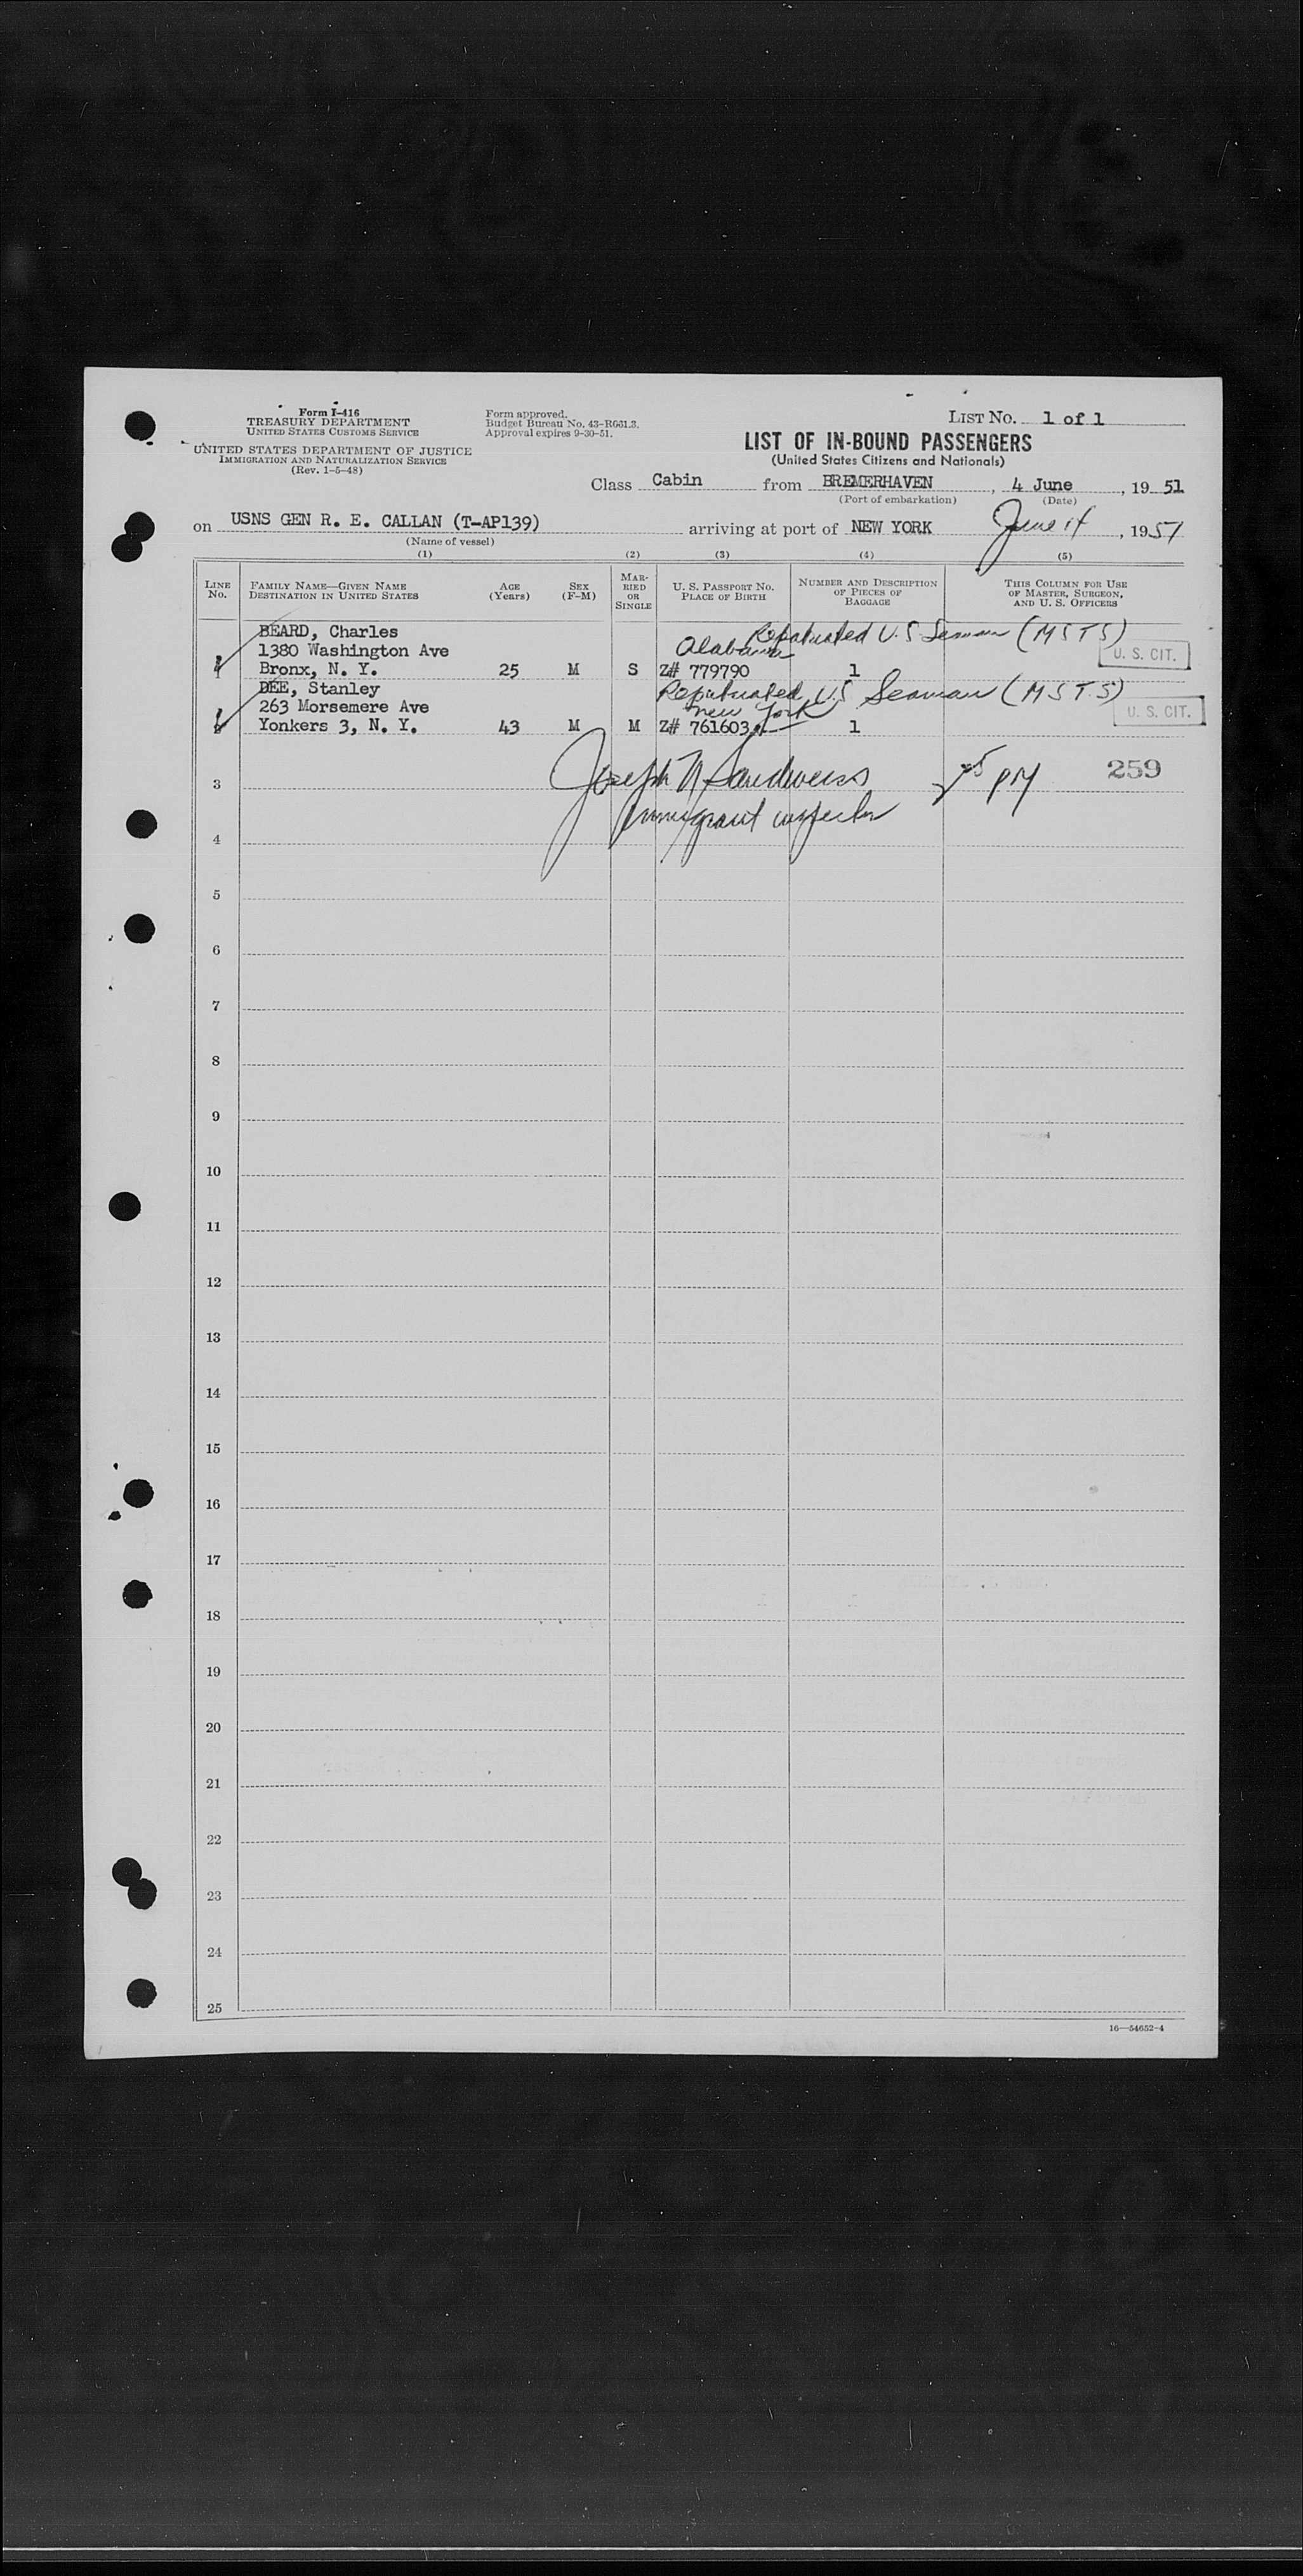 Form I-416
TREASURY DEPARTMENT
UNITED STATES CUSTOMS SERVICE
UNITED STATES DEPARTMENT OF JUSTICE
IMMIGRATION AND NATURALIZATION SERVICE
(Rev. 1-5-48)
Form approved.
Budget Bureau No. 43-R661.3.
Approval expires 9-30-51.
LIST No. 1 of 1
LIST OF IN-BOUND PASSENGERS
(United States Citizens and Nationals)
Class Cabin from BREMERHAVEN, 4 June, 19 51
(Port of embarkation) (Date)
on USNS GEN R. E. CALLAN (T-AP139) arriving at port of NEW YORK June 14, 1951
(Name of vessel)
(1) (2) (3) (4) (5)
LINE No.
FAMILY NAME—GIVEN NAME
DESTINATION IN UNITED STATES
AGE (Years)
SEX (F-M)
MARRIED OR SINGLE
U. S. PASSPORT No.
PLACE OF BIRTH
NUMBER AND DESCRIPTION OF PIECES OF BAGGAGE
THIS COLUMN FOR USE OF MASTER, SURGEON, AND U. S. OFFICERS
BEARD, Charles Repatriated U.S Seaman (MSTS)
1380 Washington Ave Alabama U. S. CIT.
1 Bronx, N. Y. 25 M S Z# 779790 1
DEE, Stanley Repatriated U.S Seaman (MSTS)
263 Morsemere Ave New York U. S. CIT.
2 Yonkers 3, N. Y. 43 M M Z# 761603 1
3 Joseph N Sandweiss PM 259
Immigrant inspector
4
5
6
7
8
9
10
11
12
13
14
15
16
17
18
19
20
21
22
23
24
25
16—54652-4